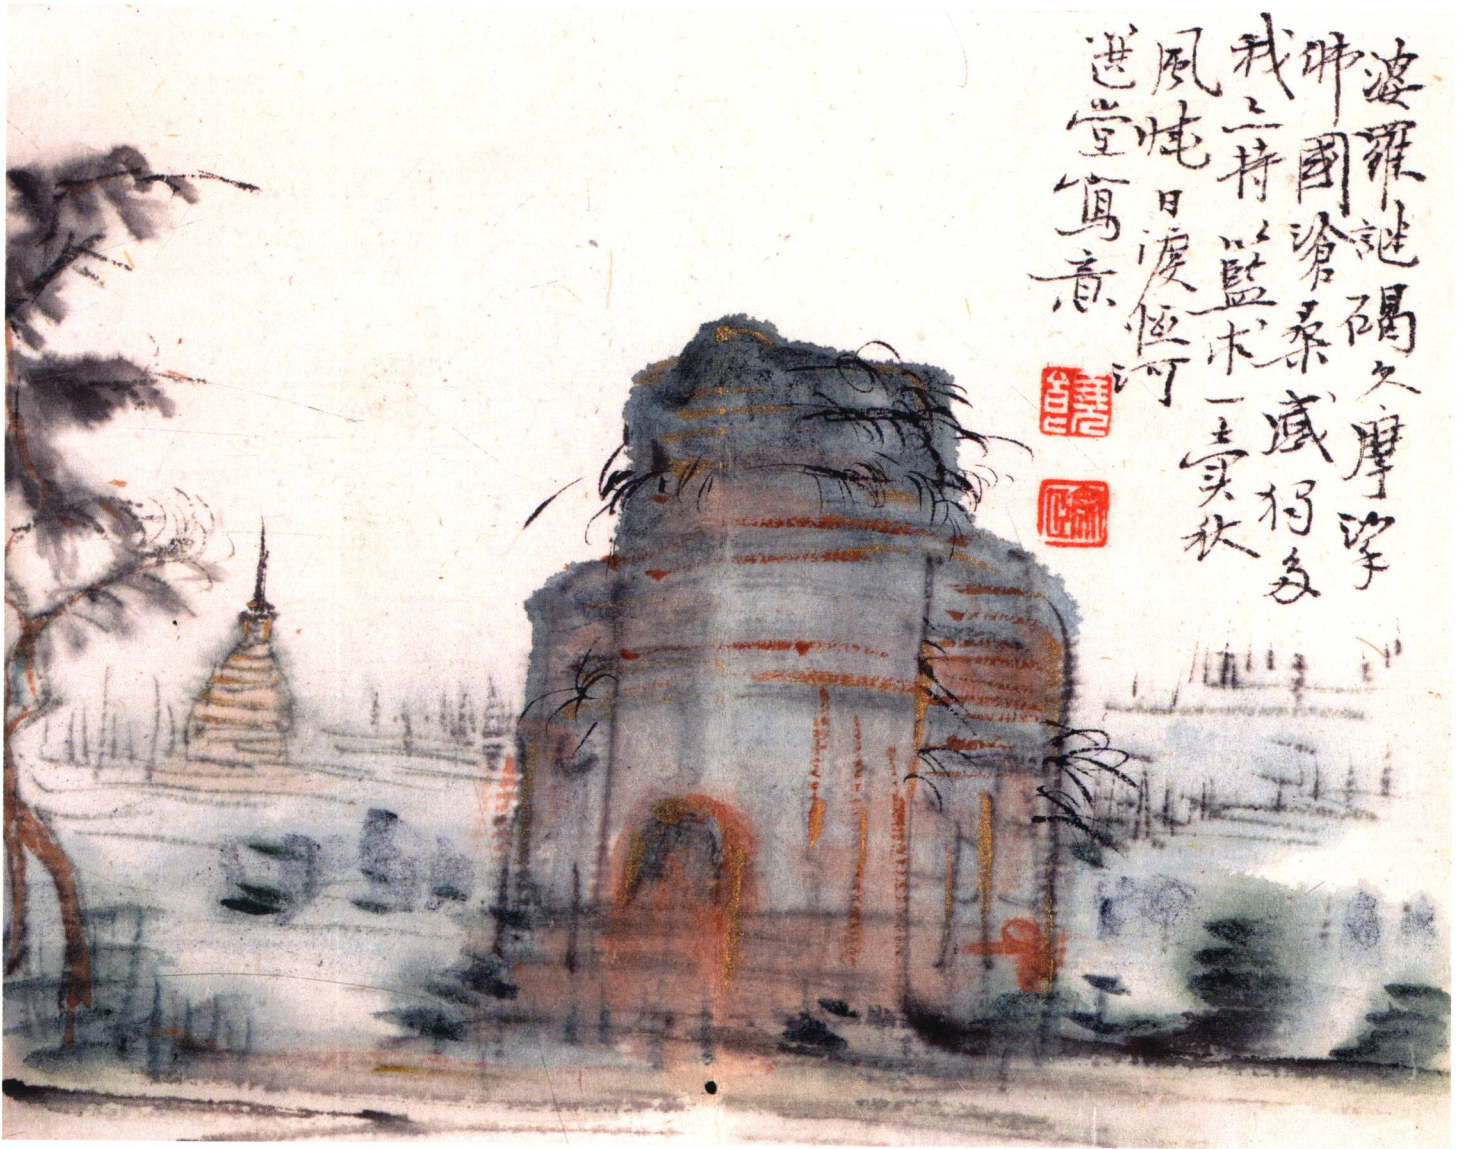 婆羅謎碣久摩挲
佛國滄桑感獨多
我亦持籃求一賣秋
風晚日渡恆河
選堂寫意